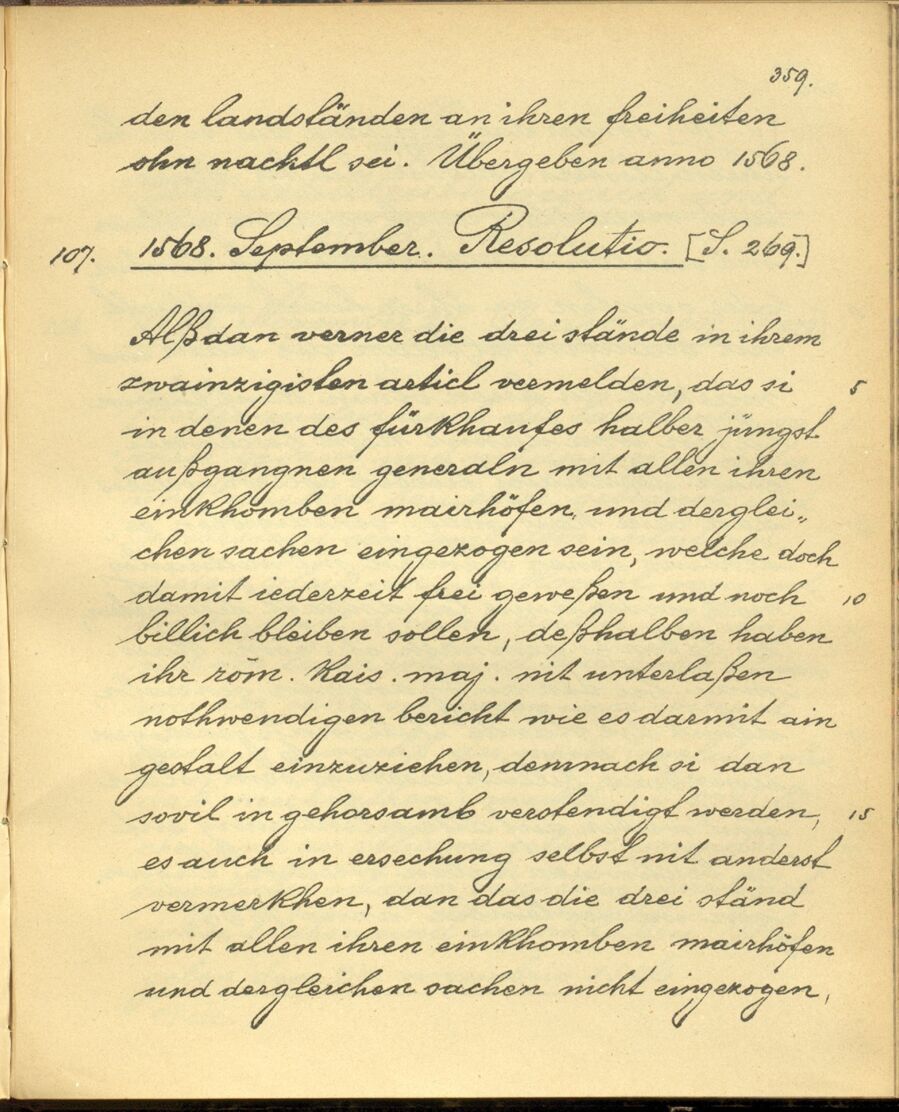 359.
den landständen an ihren freiheiten
ohn nachtl sei. Übergeben anno 1568.
107. 1568. September. Resolutio. [S. 269.]
Alßdan verner die drei stände in ihrem
zwainzigisten articl vermelden, das si 5
in denen des fürkhaufes halber jüngst
außgangnen generaln mit allen ihren
einkhomben mairhöfen, und derglei„
chen sachen eingezogen sein, welche doch
damit iederzeit frei geweßen und noch 10
billich bleiben sollen, deßhalben haben
ihr röm. Kais. maj. nit unterlaßen
nothwendigen bericht wie es darmit ain
gestalt einzuziehen, demnach si dan
sovil in gehorsamb verstendigt werden, 15
es auch in ersechung selbst nit anderst
vermerkhen, dan das die drei ständ
mit allen ihren einkhomben mairhöfen
und dergleichen sachen nicht eingezogen,